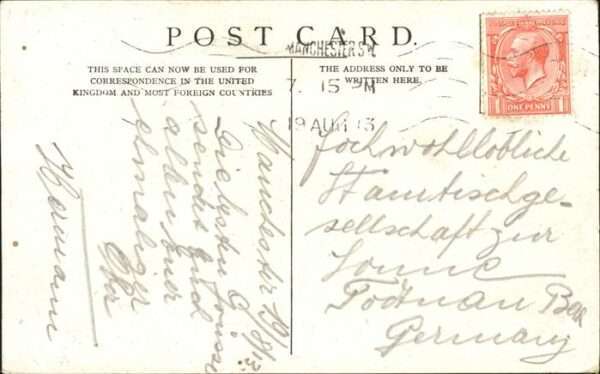 POST CARD.
MANCHESTER S.W.
7. 15 PM
19 AUG 13
THIS SPACE CAN NOW BE USED FOR
CORRESPONDENCE IN THE UNITED
KINGDOM AND MOST FOREIGN COUNTRIES
THE ADDRESS ONLY TO BE
WRITTEN HERE
POSTAGE REVENUE
1 ONE PENNY 1
Manchester 19/8/13.
Grüsse
sendet Euch
allen Euer
ehmaliger
Ober
Hermann
Hochwohllöbliche
Stamtischge-
sellschaft zur
Sonne
Todtnau
Germany